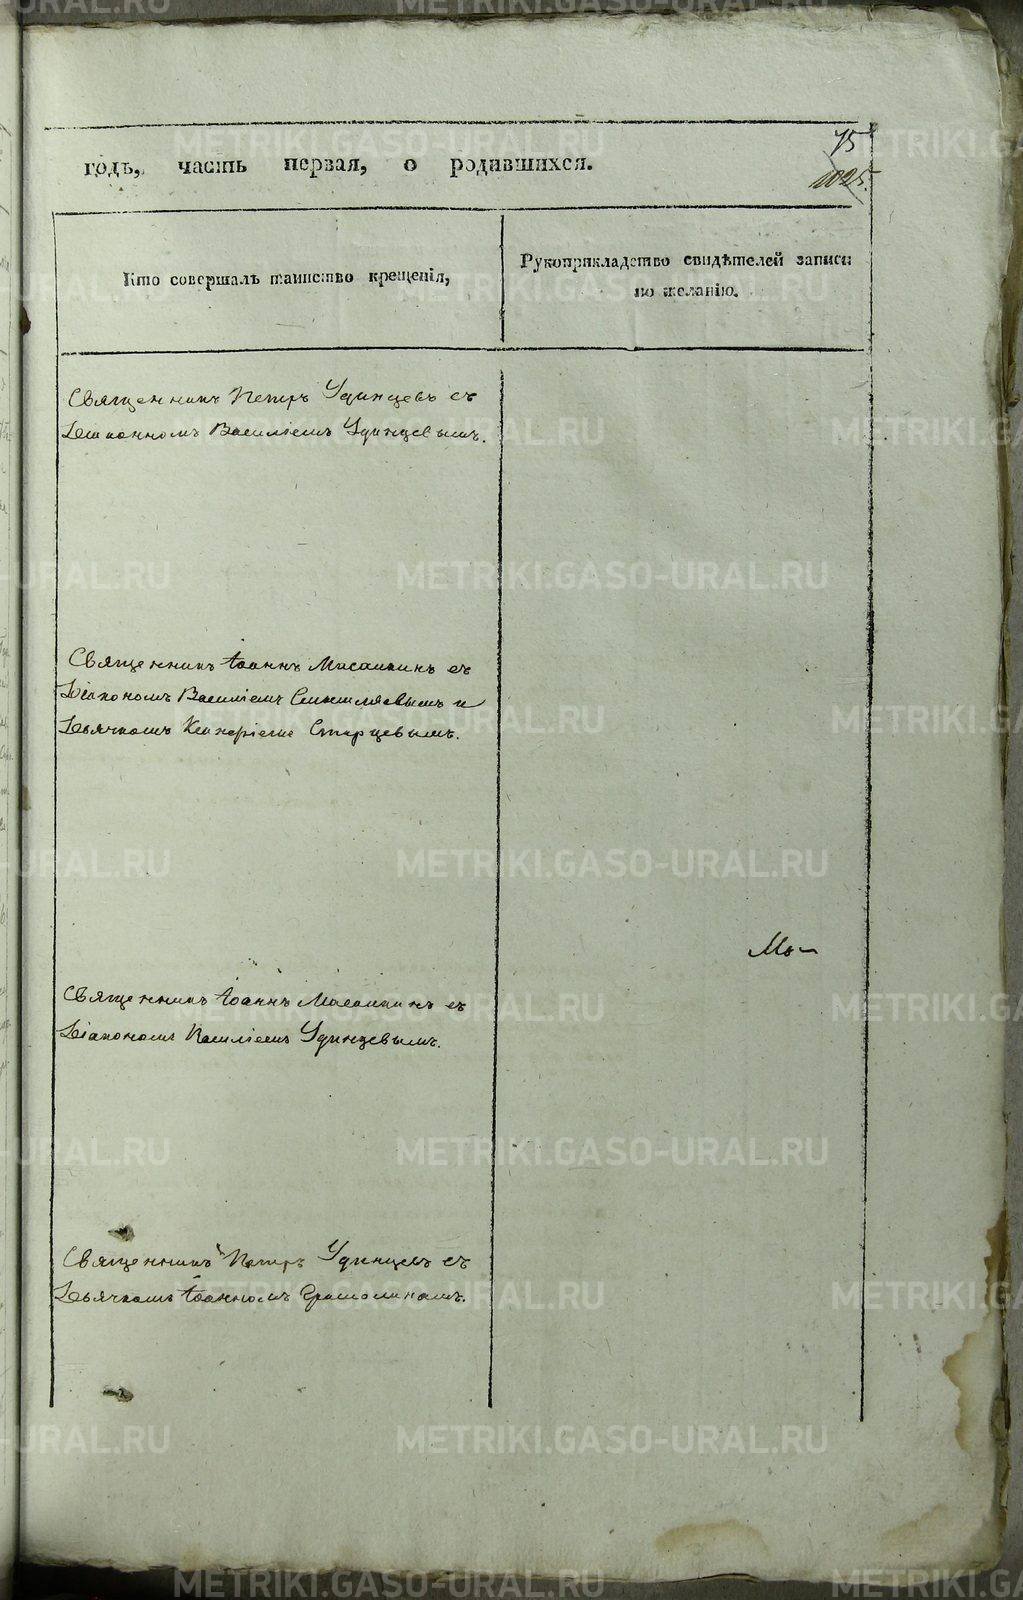 75
1025.
годъ, часть первая, о родившихся.
Кто совершалъ таинство крещенія,
Рукоприкладство свидѣтелей записи
по желанію.
Священникъ Петръ Удинцевъ съ
Діакономъ Василіемъ Удинцевымъ.
Священникъ Іоаннъ съ
Діакономъ Василіемъ и
Дьячкомъ Старцевымъ.
Священникъ Іоаннъ съ
Діакономъ Василіемъ Удинцевымъ.
Священникъ Петръ Удинцевъ съ
Дьячкомъ Іоанномъ
METRIKI.GASO-URAL.RU